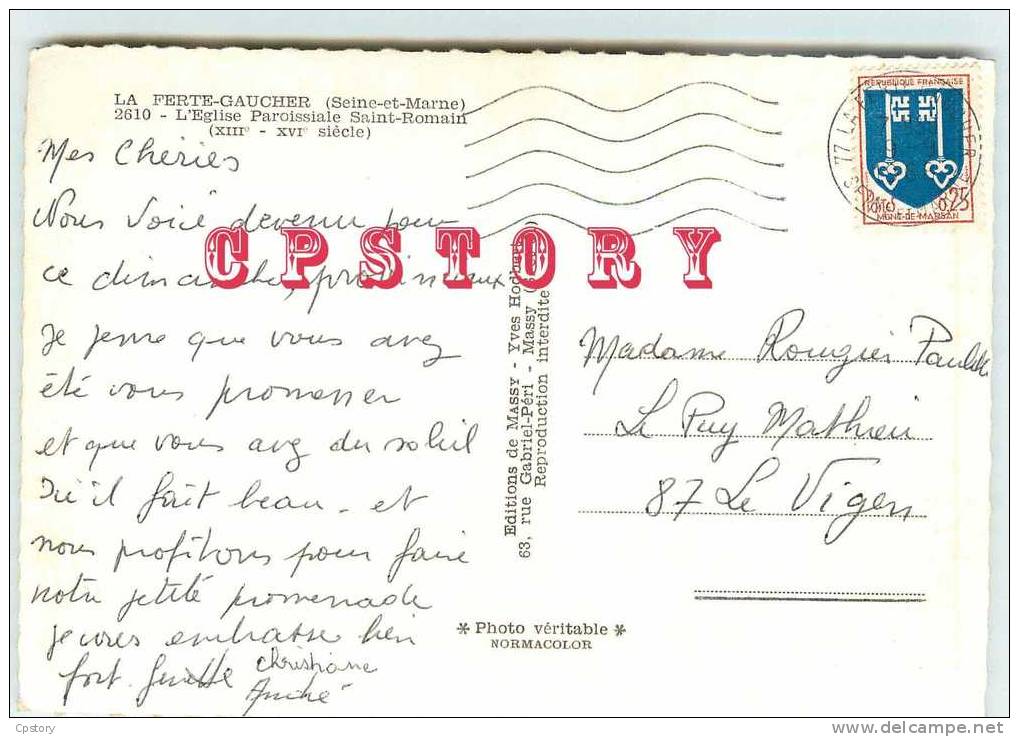 LA FERTE-GAUCHER (Seine-et-Marne)
2610 - L'Eglise Paroissiale Saint-Romain
(XIIIe - XVIe siècle)
Mes Cheries
Nous Voici devenu pour
ce dimanche, provinciaux
Je pense que vous avez
été vous promener
et que vous avez du soleil
Ici il fait beau - et
nous profitons pour faire
notre petite promenade
je vous embrasse bien
fort.
Christiane
André
CPSTORY
Editions de MASSY - Yves
63, rue Gabriel-Péri - Massy
Reproduction interdite
REPUBLIQUE FRANÇAISE
0.25
MONT-DE-MARSAN
77 LA
Madame Rougier Paulette
Le Puy Mathieu
87 Le Vigen
* Photo véritable *
NORMACOLOR
Cpstory
http://www.delcampe.net